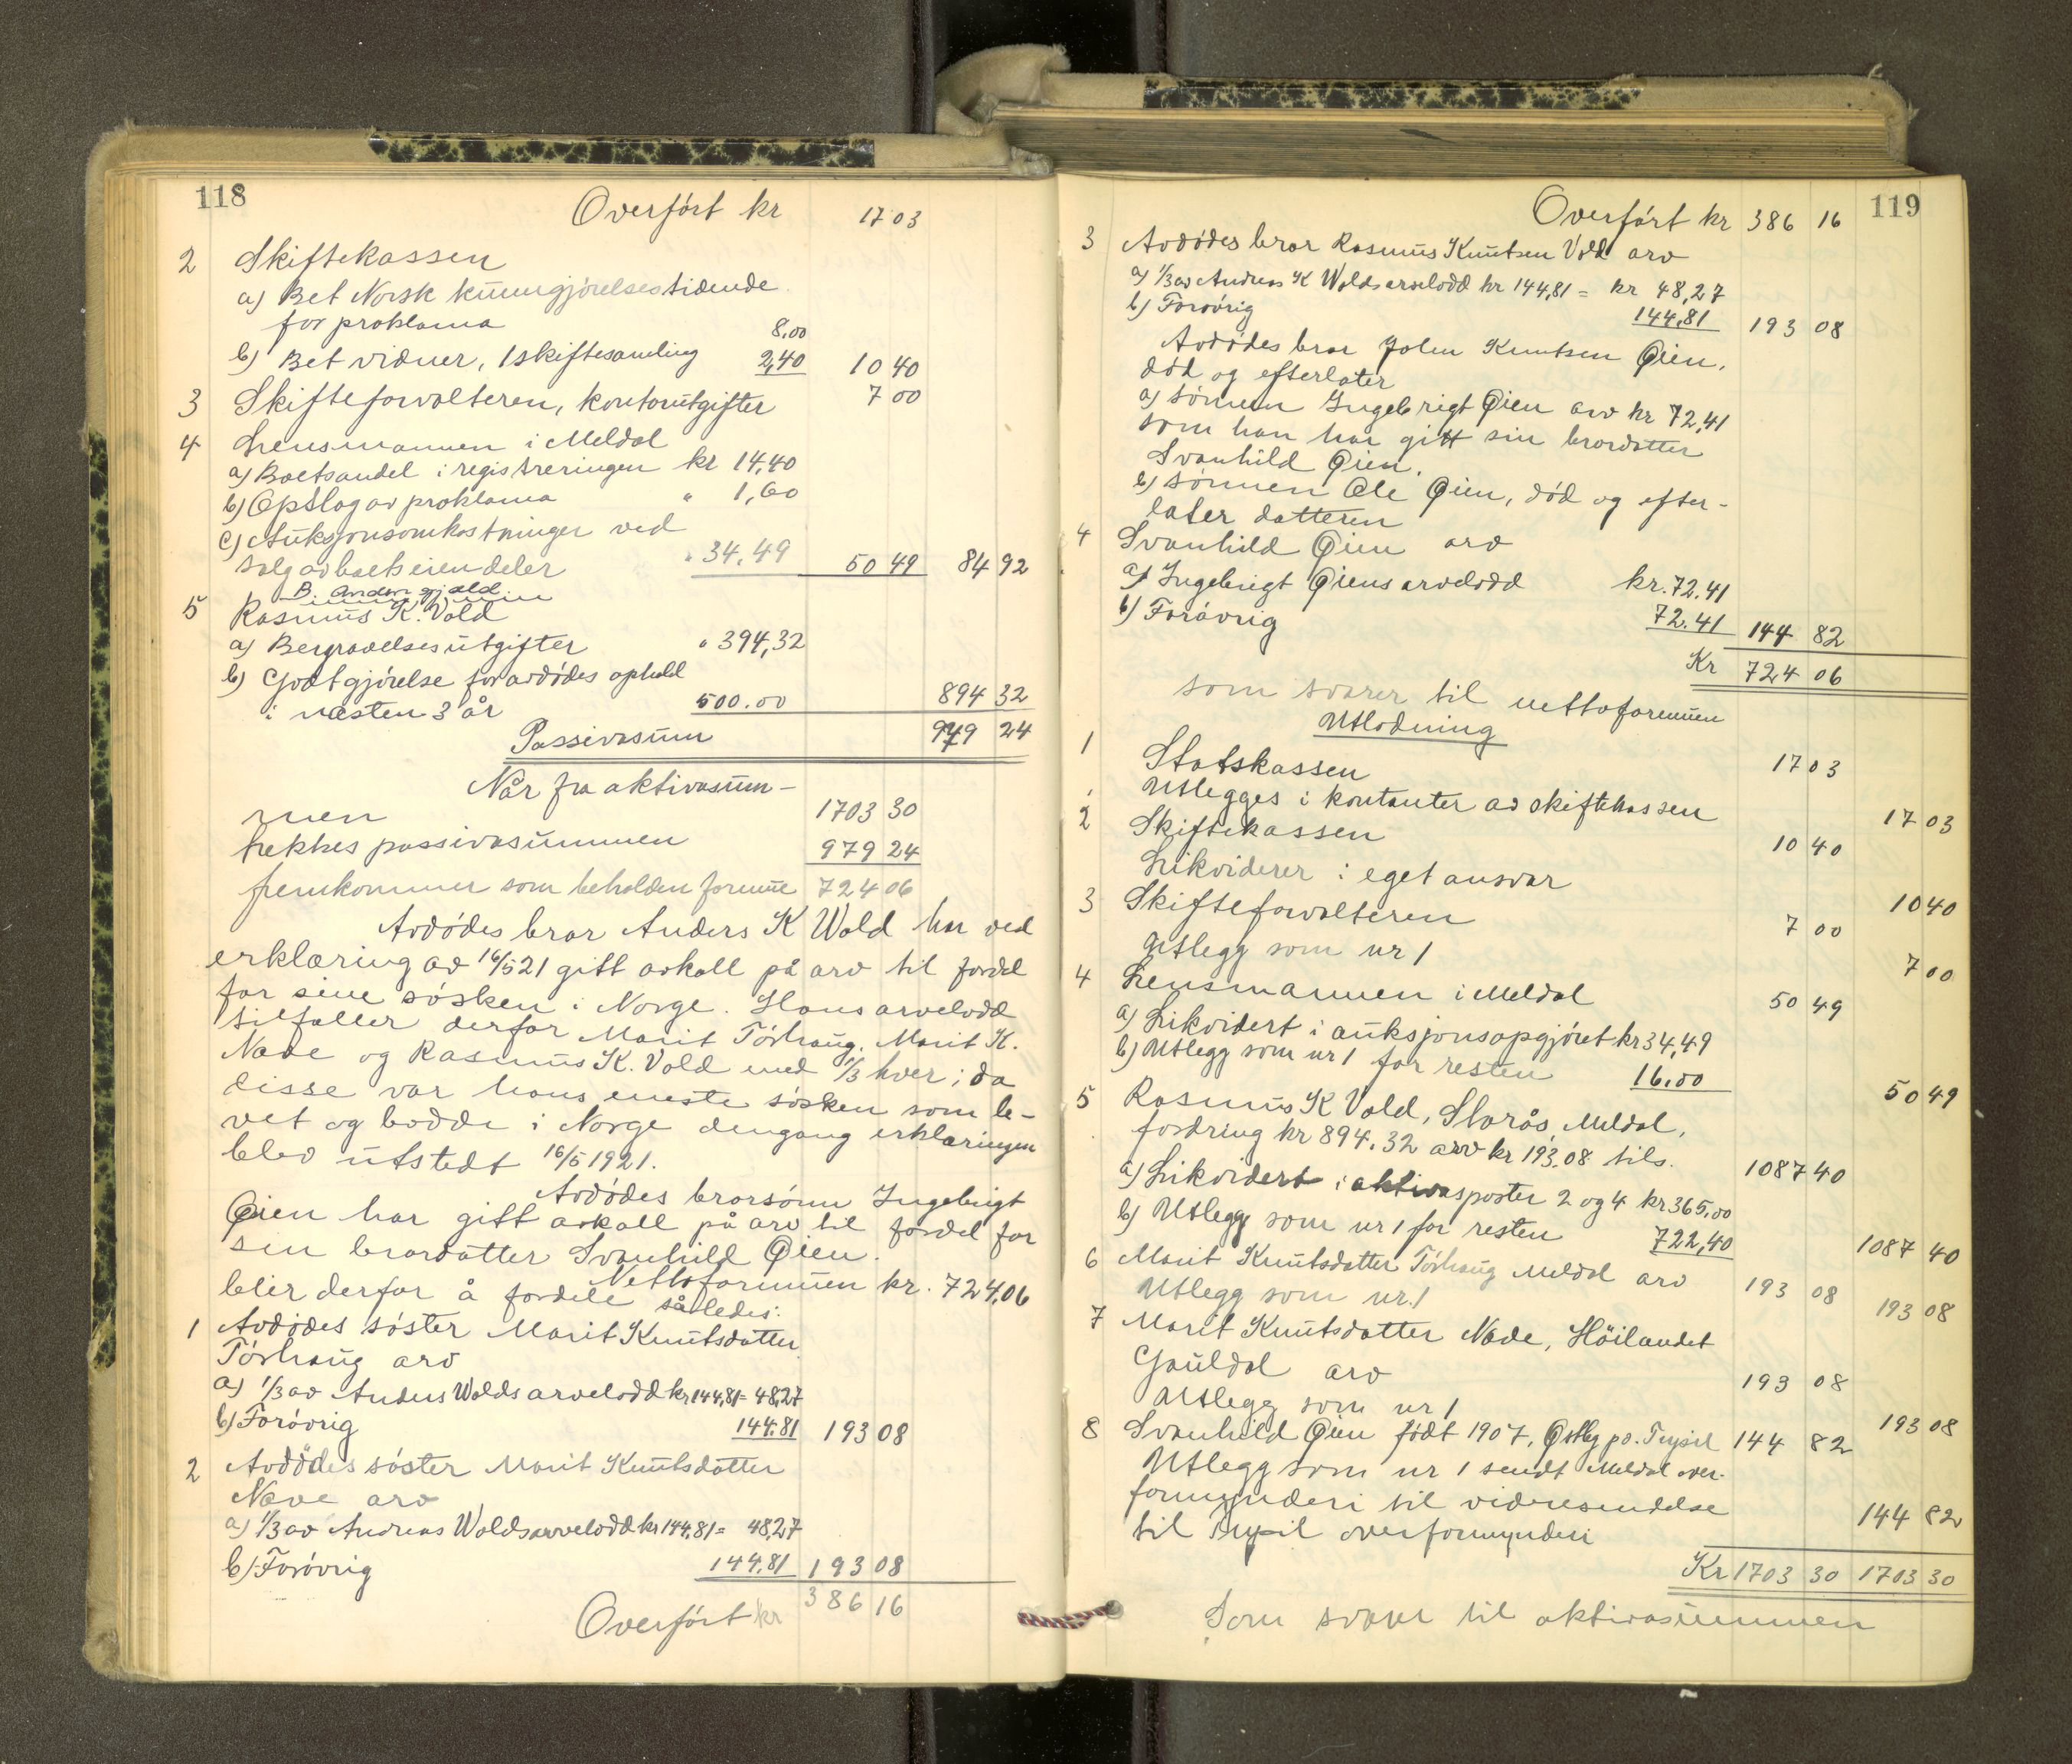 118
Overført kr 17 03
2 Skiftekassen
a) Bet Norsk kunngjørelsestidende
for proklama 8,00
b) Bet vidner, 1 skiftesamling 2,40 10 40
3 Skifteforvalteren, kontorutgifter 7 00
4 Lensmannen i Meldal
a) Boetsandel i registreringen kr 14,40
b) Opslag av proklama " 1,60
c) Auksjonsomkostninger ved
salg av boets eiendeler " 34,49 50 49 84 92
B. Anden gjæld
5 Rasmus K. Vold
a) Bergravelsesutgifter " 394,32
b) Godtgjørelse for avdødes ophold
i næsten 3 år 500.00 894 32
Passivasum 979 24
Når fra aktivasum-
men 1703 30
trekkes passivasummen 979 24
fremkommer som beholden formue 724 06
Avdødes bror Anders K Wold har ved
erklæring av 16/5 21 gitt avkall på arv til fordel
for sine søsken i Norge. Hans arvelodd
tilfaller derfor Marit Tørhaug, Marit K.
Nave og Rasmus K. Vold med 1/3 hver; da
disse var hans eneste søsken som le-
vet og bodde i Norge dengang erklæringen
blev utstedt 16/5 1921.
Avdødes brorsønn Ingebrigt
Øien har gitt avkall på arv til fordel for
sin brordatter Svanhild Øien.
Nettoformuen kr. 724,06
blir derfor å fordele således:
1 Avdødes søster Marit Knutsdatter
Tørhaug arv
a) 1/3 av Anders Wolds arvelodd kr 144,81 = 48,27
b) Forøvrig 144.81 193 08
2 Avdødes søster Marit Knutsdatter
Nave arv
a) 1/3 av Andreas Wolds arvelodd kr 144,81 = 48,27
b) Forøvrig 144,81 193 08
Overført kr 386 16
119
Overført kr 386 16
3 Avdødes bror Rasmus Knutsen Vold arv
a) 1/3 av Andreas K Wolds arvelodd kr 144,81 = kr 48,27
b) Forøvrig 144,81 193 08
Avdødes bror John Knutsen Øien,
død og efterlater
a) sønnen Ingebrigt Øien arv kr 72,41
som han har gitt sin brordatter
Svanhild Øien.
b) sønnen Ole Øien, død og efter-
later datteren
4 Svanhild Øien arv
a) Ingebrigt Øiens arvelodd kr. 72.41
b) Forøvrig 72.41 144 82
Kr 724 06
som svarer til nettoformuen
Utlodning
1 Statskassen 17 03
Utlegges i kontanter av skiftekassen 17 03
2 Skiftekassen 10 40
Likviderer i eget ansvar 10 40
3 Skifteforvalteren 7 00
Utlegg som nr 1 7 00
4 Lensmannen i Meldal 50 49
a) Likvidert i auksjonsopgjøret kr 34,49
b) Utlegg som nr 1 for resten 16.00 50 49
5 Rasmus K Vold, Storås, Meldal,
fordring kr 894.32 arv kr 193,08 tils. 1087 40
a) Likvidert i aktivasposter 2 og 4 kr 365,00
b) Utlegg som nr 1 for resten 722,40 1087 40
6 Marit Knutsdatter Tørhaug Meldal arv 193 08
Utlegg som nr. 1 193 08
7 Marit Knutsdatter Nave, Höilandet
Gauldal arv 193 08
Utlegg som nr 1 193 08
8 Svanhild Øien født 1907, Østby po. Trysil 144 82
Utlegg som nr 1 sendt Meldal over-
formynderi til videresendelse
til Trysil overformynderi 144 82
Kr 1703 30 1703 30
Som svarer til aktivasummen